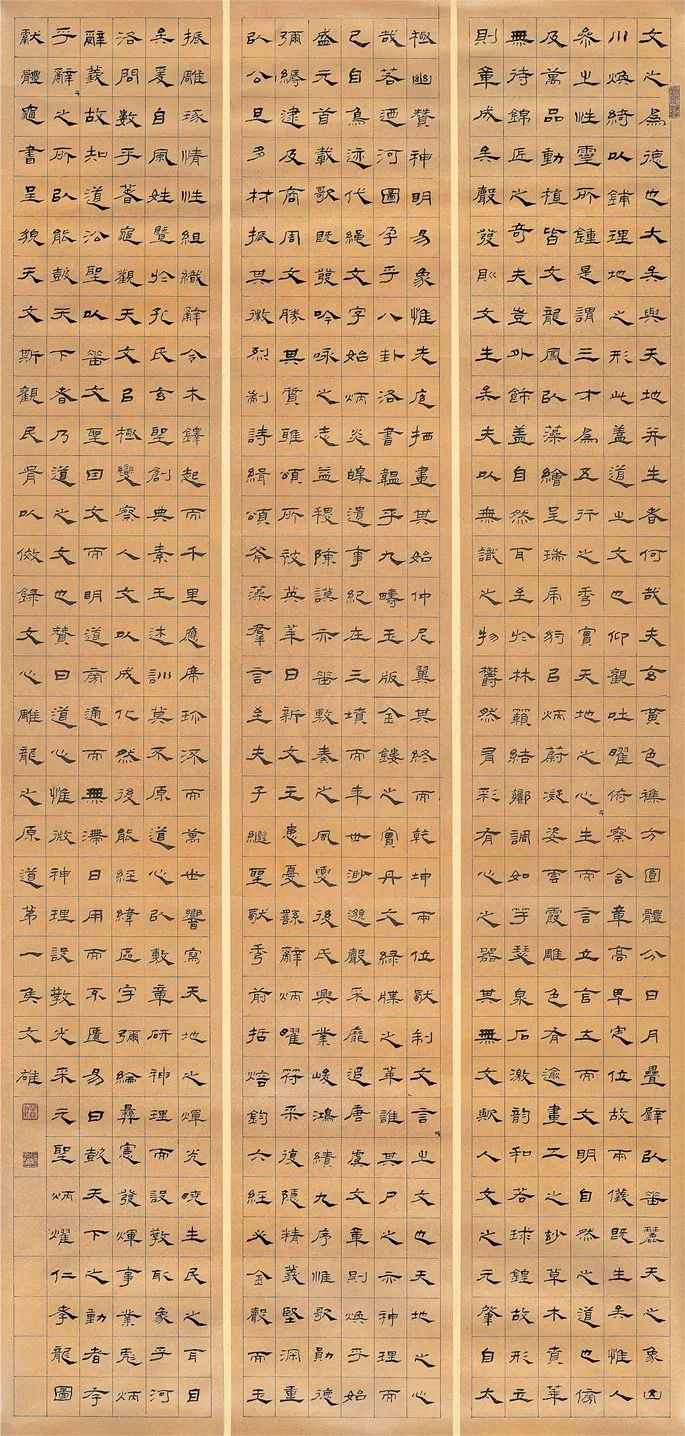 文之為德也大矣與天地并生者何哉夫玄黃色襍方圓體分日月疊壁以垂麗天之象山
川煥綺以鋪理地之形此蓋道之文也仰觀吐曜俯察含章高卑定位故兩儀既生矣惟人
參之性靈所鍾是謂三才為五行之秀實天地之心〻生而言立言立而文明自然之道也傍
及萬品動植皆文龍鳳以藻繪呈瑞虎豹以炳蔚凝姿雲霞雕色有逾畫工之妙草木賁華
無待錦匠之奇夫豈外飾蓋自然耳至於林籟結響調如竽瑟泉石激韵和若球鍠故形立
則章成矣聲發則文生矣夫以無識之物鬱然有彩有心之器其無文歟人文之元肇自太
極幽贊神明易象惟先庖牺畫其始仲尼翼其終而乾坤兩位獨制文言〻之文也天地之心
哉若迺河圖孕乎八卦洛書韞乎九疇玉版金鏤之實丹文綠牒之華誰其尸之亦神理而
已自鳥迹代繩文字始炳炎皞遺事紀在三墳而年世渺邈聲采靡追唐虞文章則煥乎始
盛元首載歌既發吟咏之志益稷陳謨亦垂敷奏之風夏後氏興業峻鴻績九序惟歌勛德
彌縟逮及商周文勝其質雅頌所被英華日新文王患憂繇辭炳曜符采復隱精義堅深重
以公旦多材振其徽烈制詩緝頌斧藻羣言至夫子繼聖獨秀前哲熔鈞六經必金聲而玉
振雕琢情性組織辭令木鐸起而千里應席珍流而萬世響寫天地之輝光曉生民之耳目
矣爰自風姓暨於孔氏玄聖創典素王述訓莫不原道心以敷章研神理而設教取象乎河
洛問數乎蓍龜觀天文以極變察人文以成化然後能經緯區宇彌綸彝憲發輝事業彪炳
辭義故知道沿聖以垂文聖因文而明道旁通而無滯日用而不匱易曰鼓天下之動者存
乎辭〻之所以能鼓天下者乃道之文也贊曰道心惟微神理設教光采元聖炳燿仁孝龍圖
獻體龜書呈貌天文斯觀民胥以傚錄文心雕龍之原道第一文雄